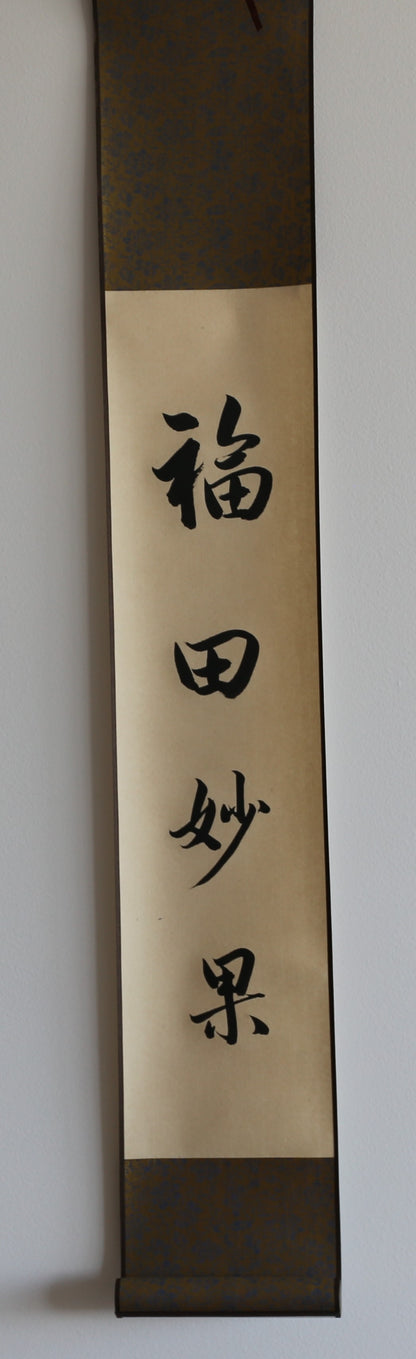 福田妙果